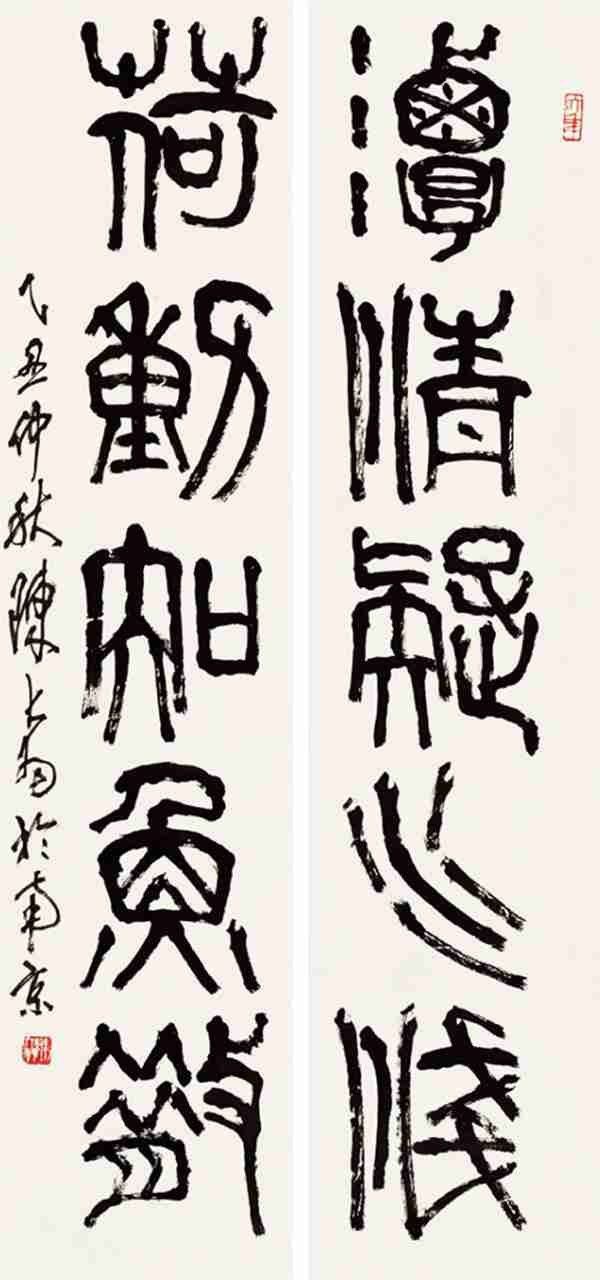 潭清疑水淺
荷動知魚散
乙丑仲秋陳大羽於南京